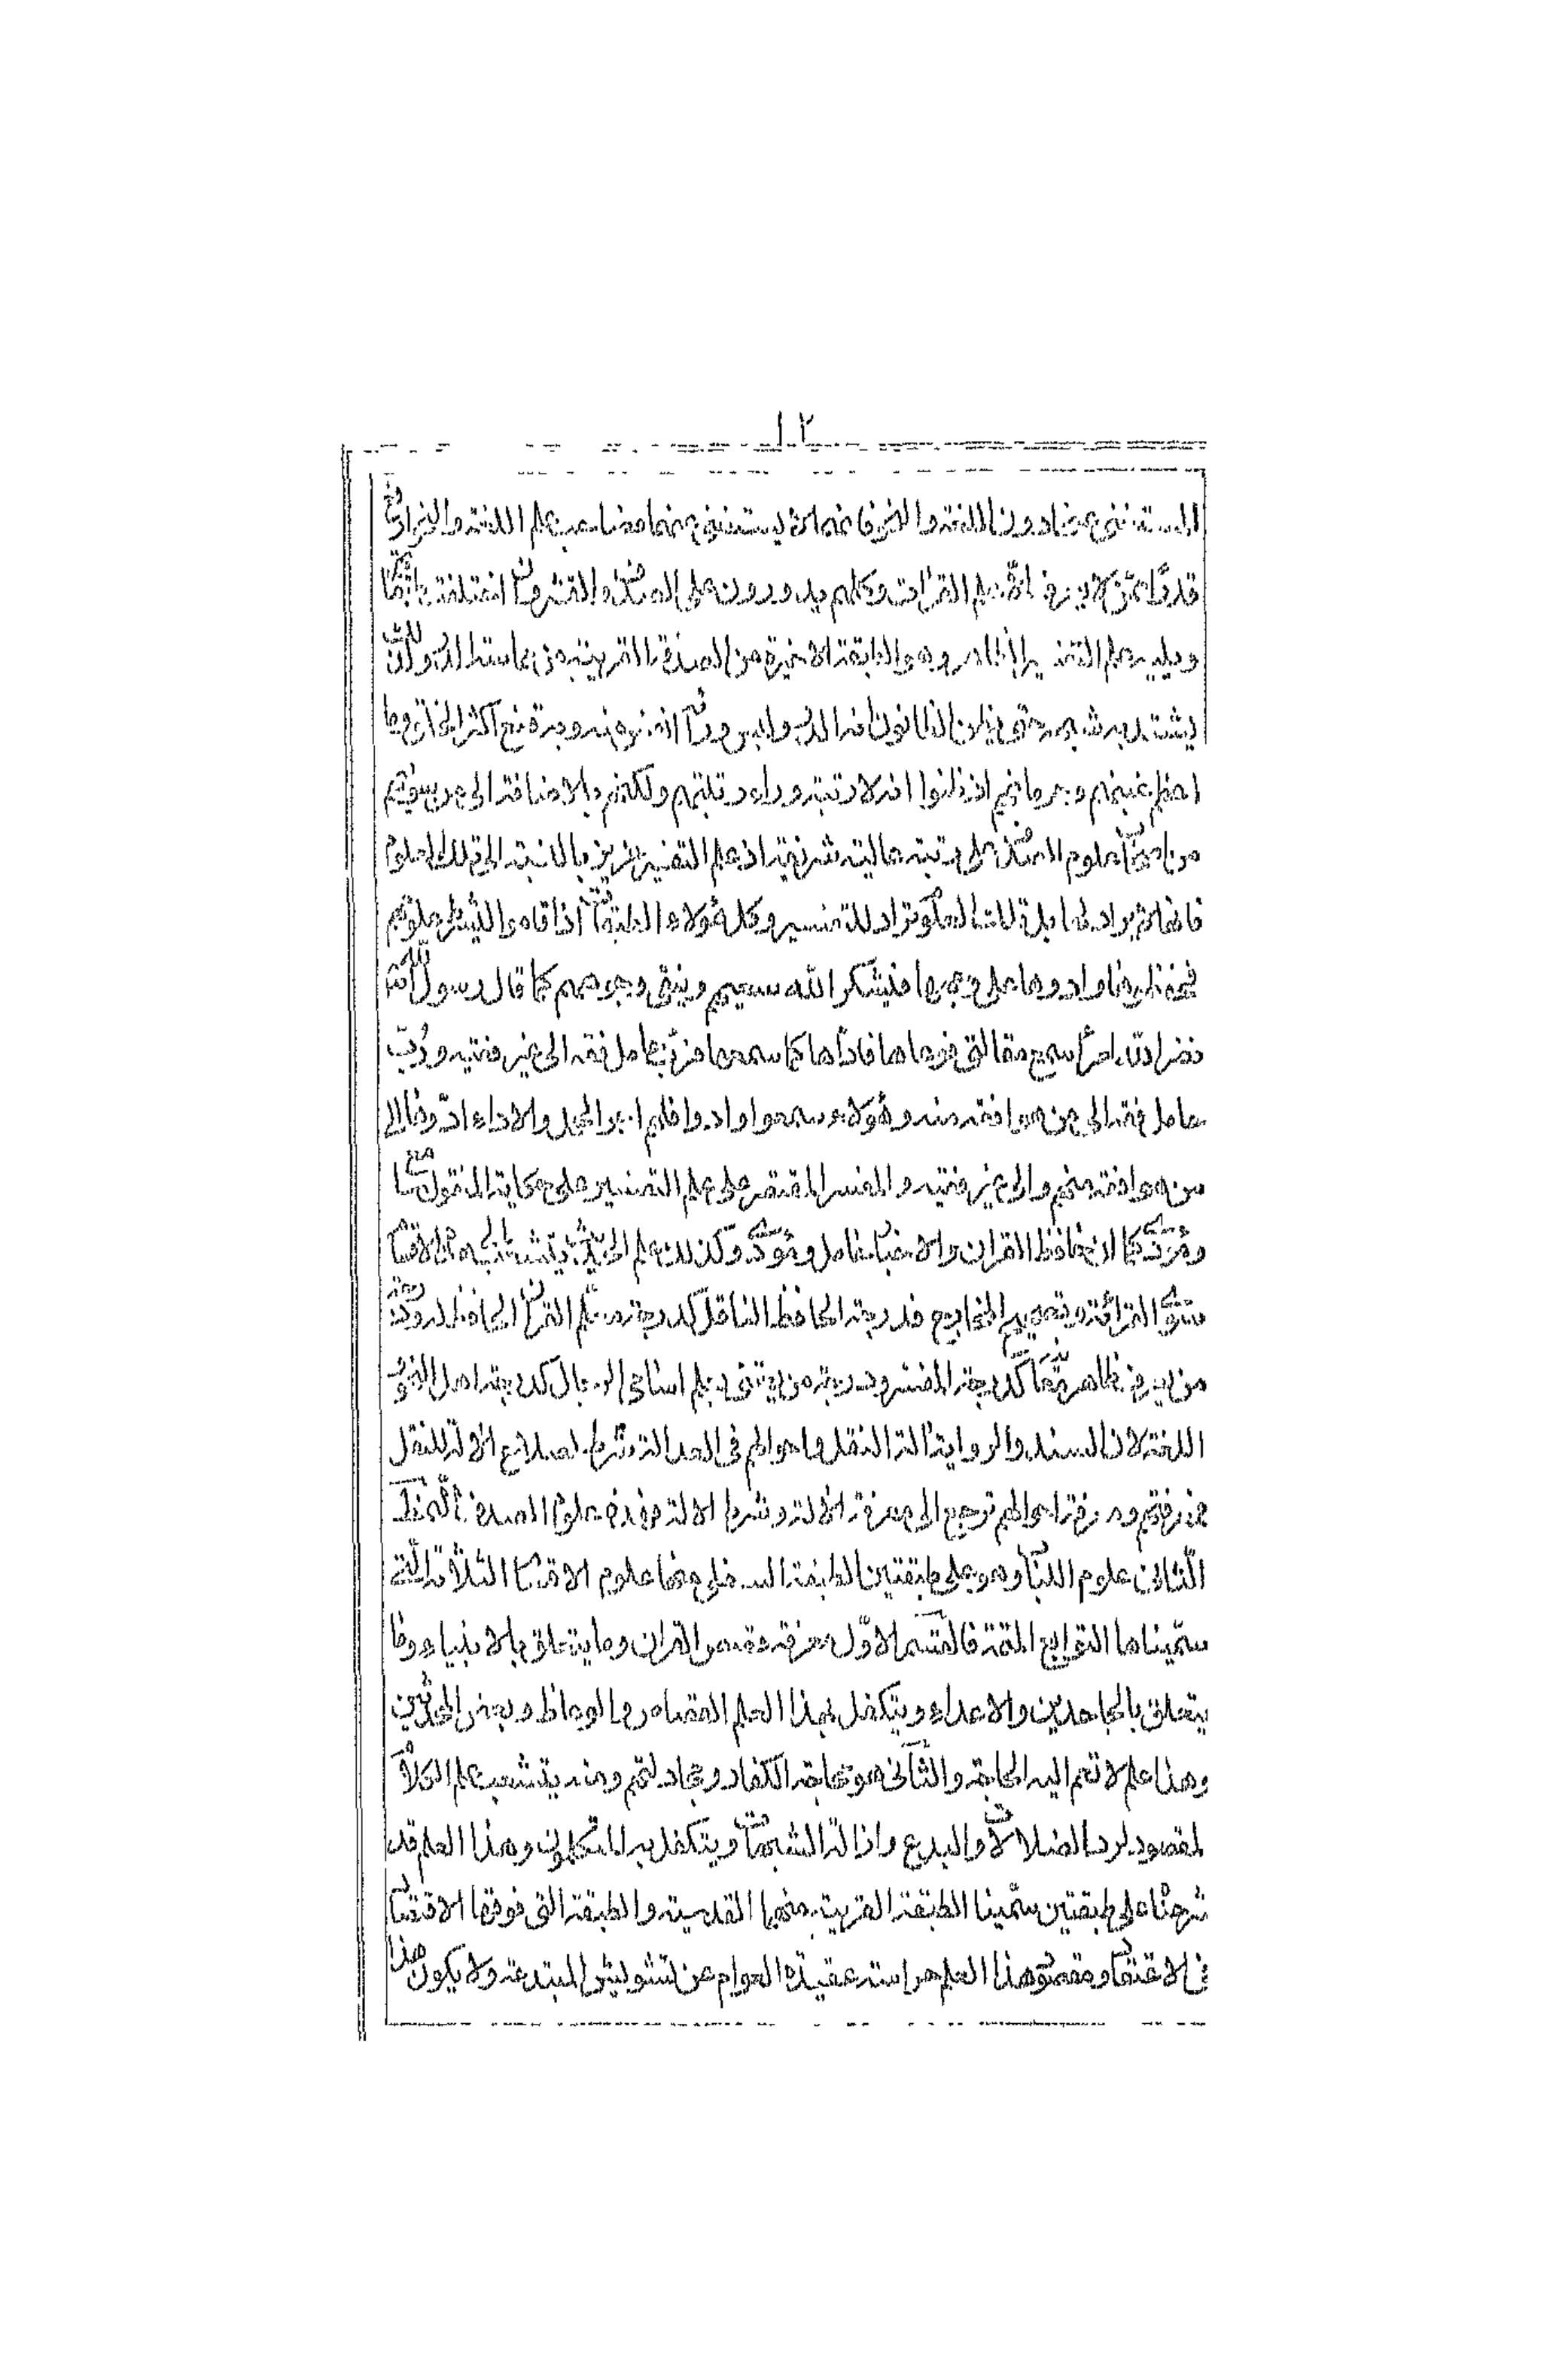 ١٢
المستغنى عنها دون اللغة والنحو فانهما لا يستغنى عنهما فصاحب علم اللغة والنحو ارفع
قدرًا ممن لا يعرف الا علم القرات وكلهم يدورون على الصدف والقشر وان اختلفت طبقاتهم
ويليه علم التفسير الظاهر وهو الطبقة الاخيرة من الصدفة القريبة من مماسة الدر ولذلك
يشتد به شبهه حتى يظن الظانون انه الدر وليس وراءه انفس منه وبه قنع اكثر الخلق وما
اعظم غبنهم وحرمانهم اذ ظنوا انه لا رتبة وراء رتبتهم ولكنهم بالاضافة الى من سواهم
من اصحاب علوم الصدف على رتبة عالية شريفة اذ علم التفسير عزيز بالنسبة الى تلك العلوم
فانه لا يراد لها بل تلك العلوم تراد للتفسير وكل هؤلاء الطبقات اذا قاموا بشرط علومهم
فحفظوها وادوها على وجهها فيشكر الله سعيهم وينقى وجوههم كما قال رسول الله
نضر الله امرأ سمع مقالتى فوعاها فاداها كما سمعها فرب حامل فقه الى غير فقيه ورب
حامل فقه الى من هو افقه منه وهؤلاء سمعوا وادوا فلهم اجر الحمل والاداء ادوها الى
من هو افقه منهم والى غير فقيه والمفسر المقتصر فى علم التفسير على حكاية المنقول سامع
ومؤد كما ان حافظ القران والاخبار حامل ومؤد وكذلك علم الحديث يتشعب الى هذه الاقسام
سوى القرائة وتصحيح المخارج فدرجة الحافظ الناقل كدرجة معلم القران الحافظ له ودرجة
من يعرف ظاهر معانيه كدرجة المفسر ودرجة من يعتنى بعلم اسامى الرجال كدرجة اهل النحو و
اللغة لان السند والرواية الة النقل واحوالهم فى العدالة شرط لصلاح الالة للنقل
فمعرفتهم ومعرفة احوالهم ترجع الى معرفة الالة وشرط الالة فهذه علوم الصدف النمط
الثانى علوم اللباب وهو على طبقتين الطبقة السفلى منها علوم الاقسام الثلاثة التى
سميناها التوابع المتمة فالقسم الاول معرفة قصص القران وما يتعلق بالانبياء وما
يتعلق بالجاحدين والاعداء ويتكفل بهذا العلم القصاص والوعاظ وبعض المحدثين
وهذا علم لا تعم اليه الحاجة والثانى هو محاجة الكفار ومجادلتهم ومنه يتشعب علم الكلام
لمقصود لرد الضلالات والبدع وازالة الشبهات ويتكفل به المتكلمون وهذا العلم قد
شرحناه على طبقتين سمينا الطبقة القريبة منهما القدسية والطبقة التى فوقها الاقتصاد
فى الاعتقاد ومقصود هذا العلم حراسة عقيدة العوام عن تشويش المبتدعة ولا يكون هذا